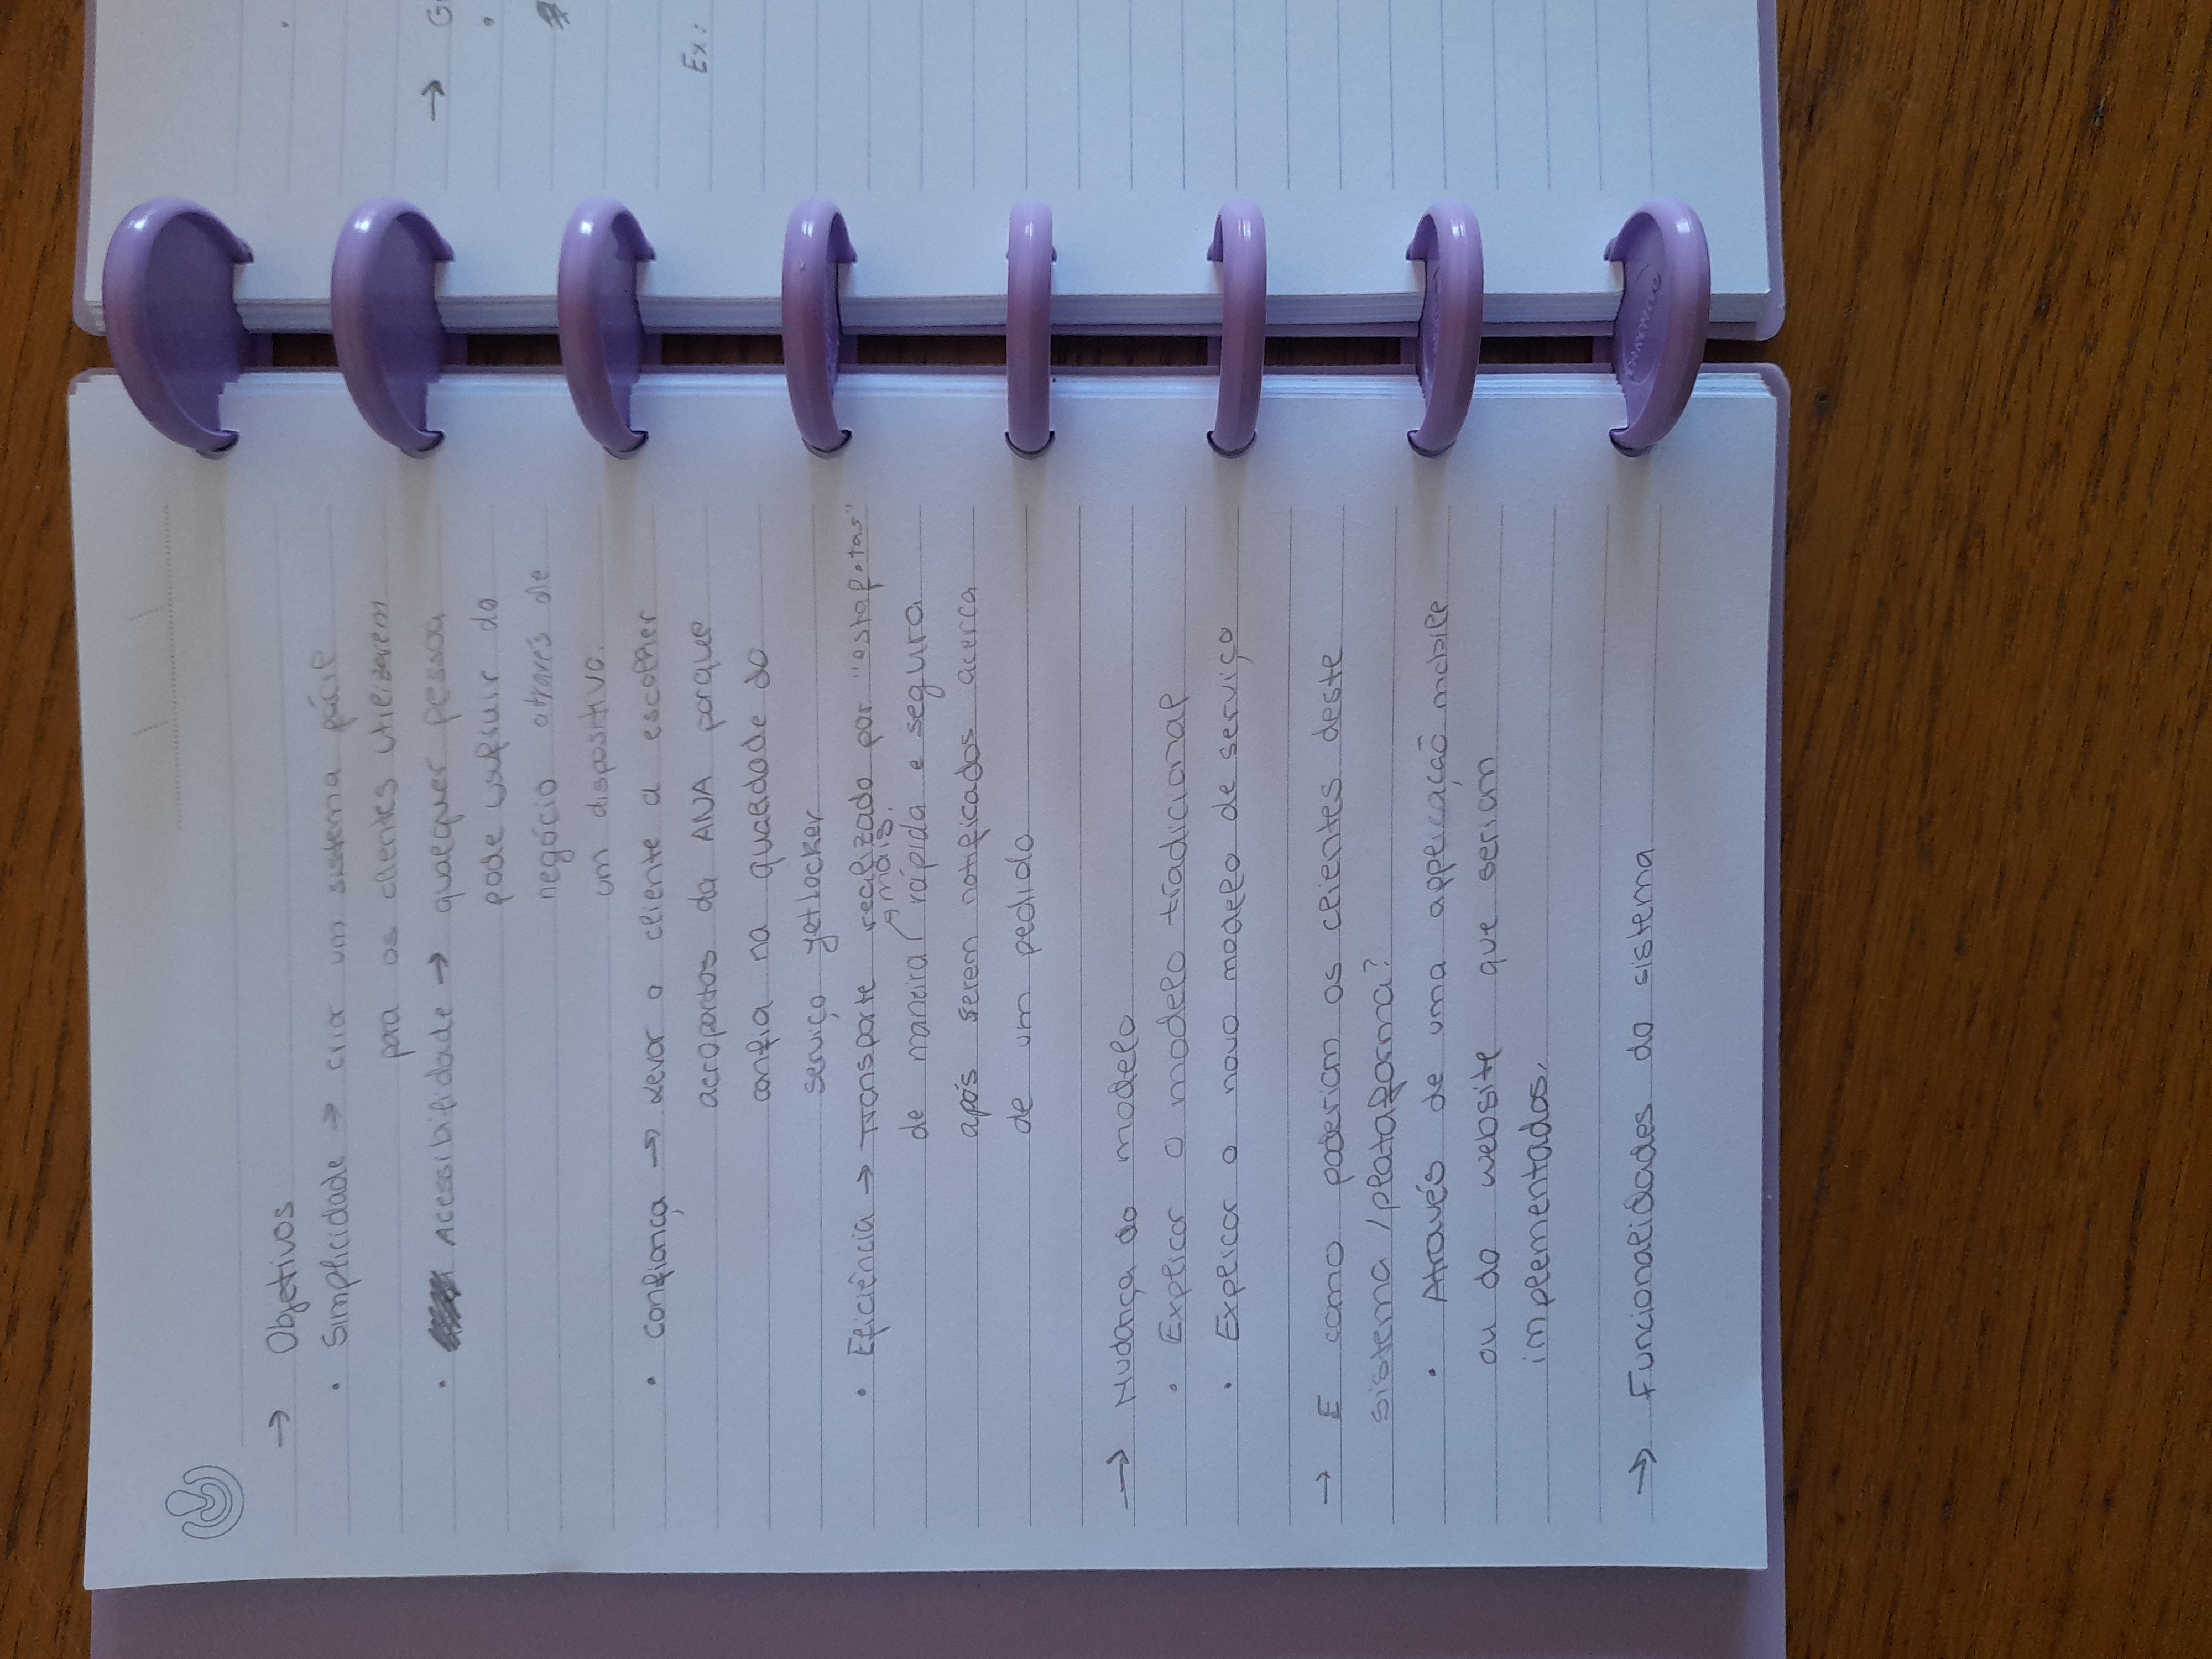 → Objetivos
• Simplicidade → criar um sistema fácil
para os clientes utilizarem
• Acessibilidade → qualquer pessoa
pode usufruir do
negócio através de
um dispositivo.
• Confiança → Levar o cliente a escolher
aeroportos da ANA porque
confia na qualidade do
serviço getlocker
• Eficiência → Transporte realizado por "estafetas"
mais.
de maneira rápida e segura
após serem notificados acerca
de um pedido
→ Mudança do modelo
• Explicar o modelo tradicional
• Explicar o novo modelo de serviço
→ E como poderiam os clientes deste
sistema / plataforma?
• Através de uma applicação mobile
ou do website que seriam
implementados.
→ Funcionalidades do sistema
→ G
Ex: